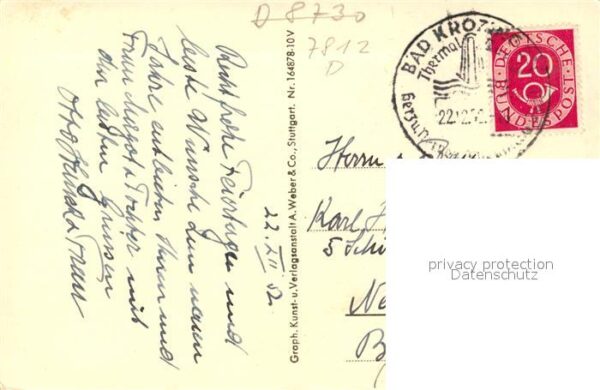 D 8730
7812
D
Recht frohe Feiertage und
beste Wünsche dem neuen
Jahre entbieten Ihnen und
Frau Margot + Tochter mit
den besten Grüssen
Otto + Frau
22.XII.52.
Graph. Kunst- u. Verlagsanstalt A. Weber & Co., Stuttgart. Nr. 164878-10V
BAD KROZINGEN
Thermal
22.12.52
DEUTSCHE
BUNDESPOST
20
Herrn
Karl
5
privacy protection
Datenschutz